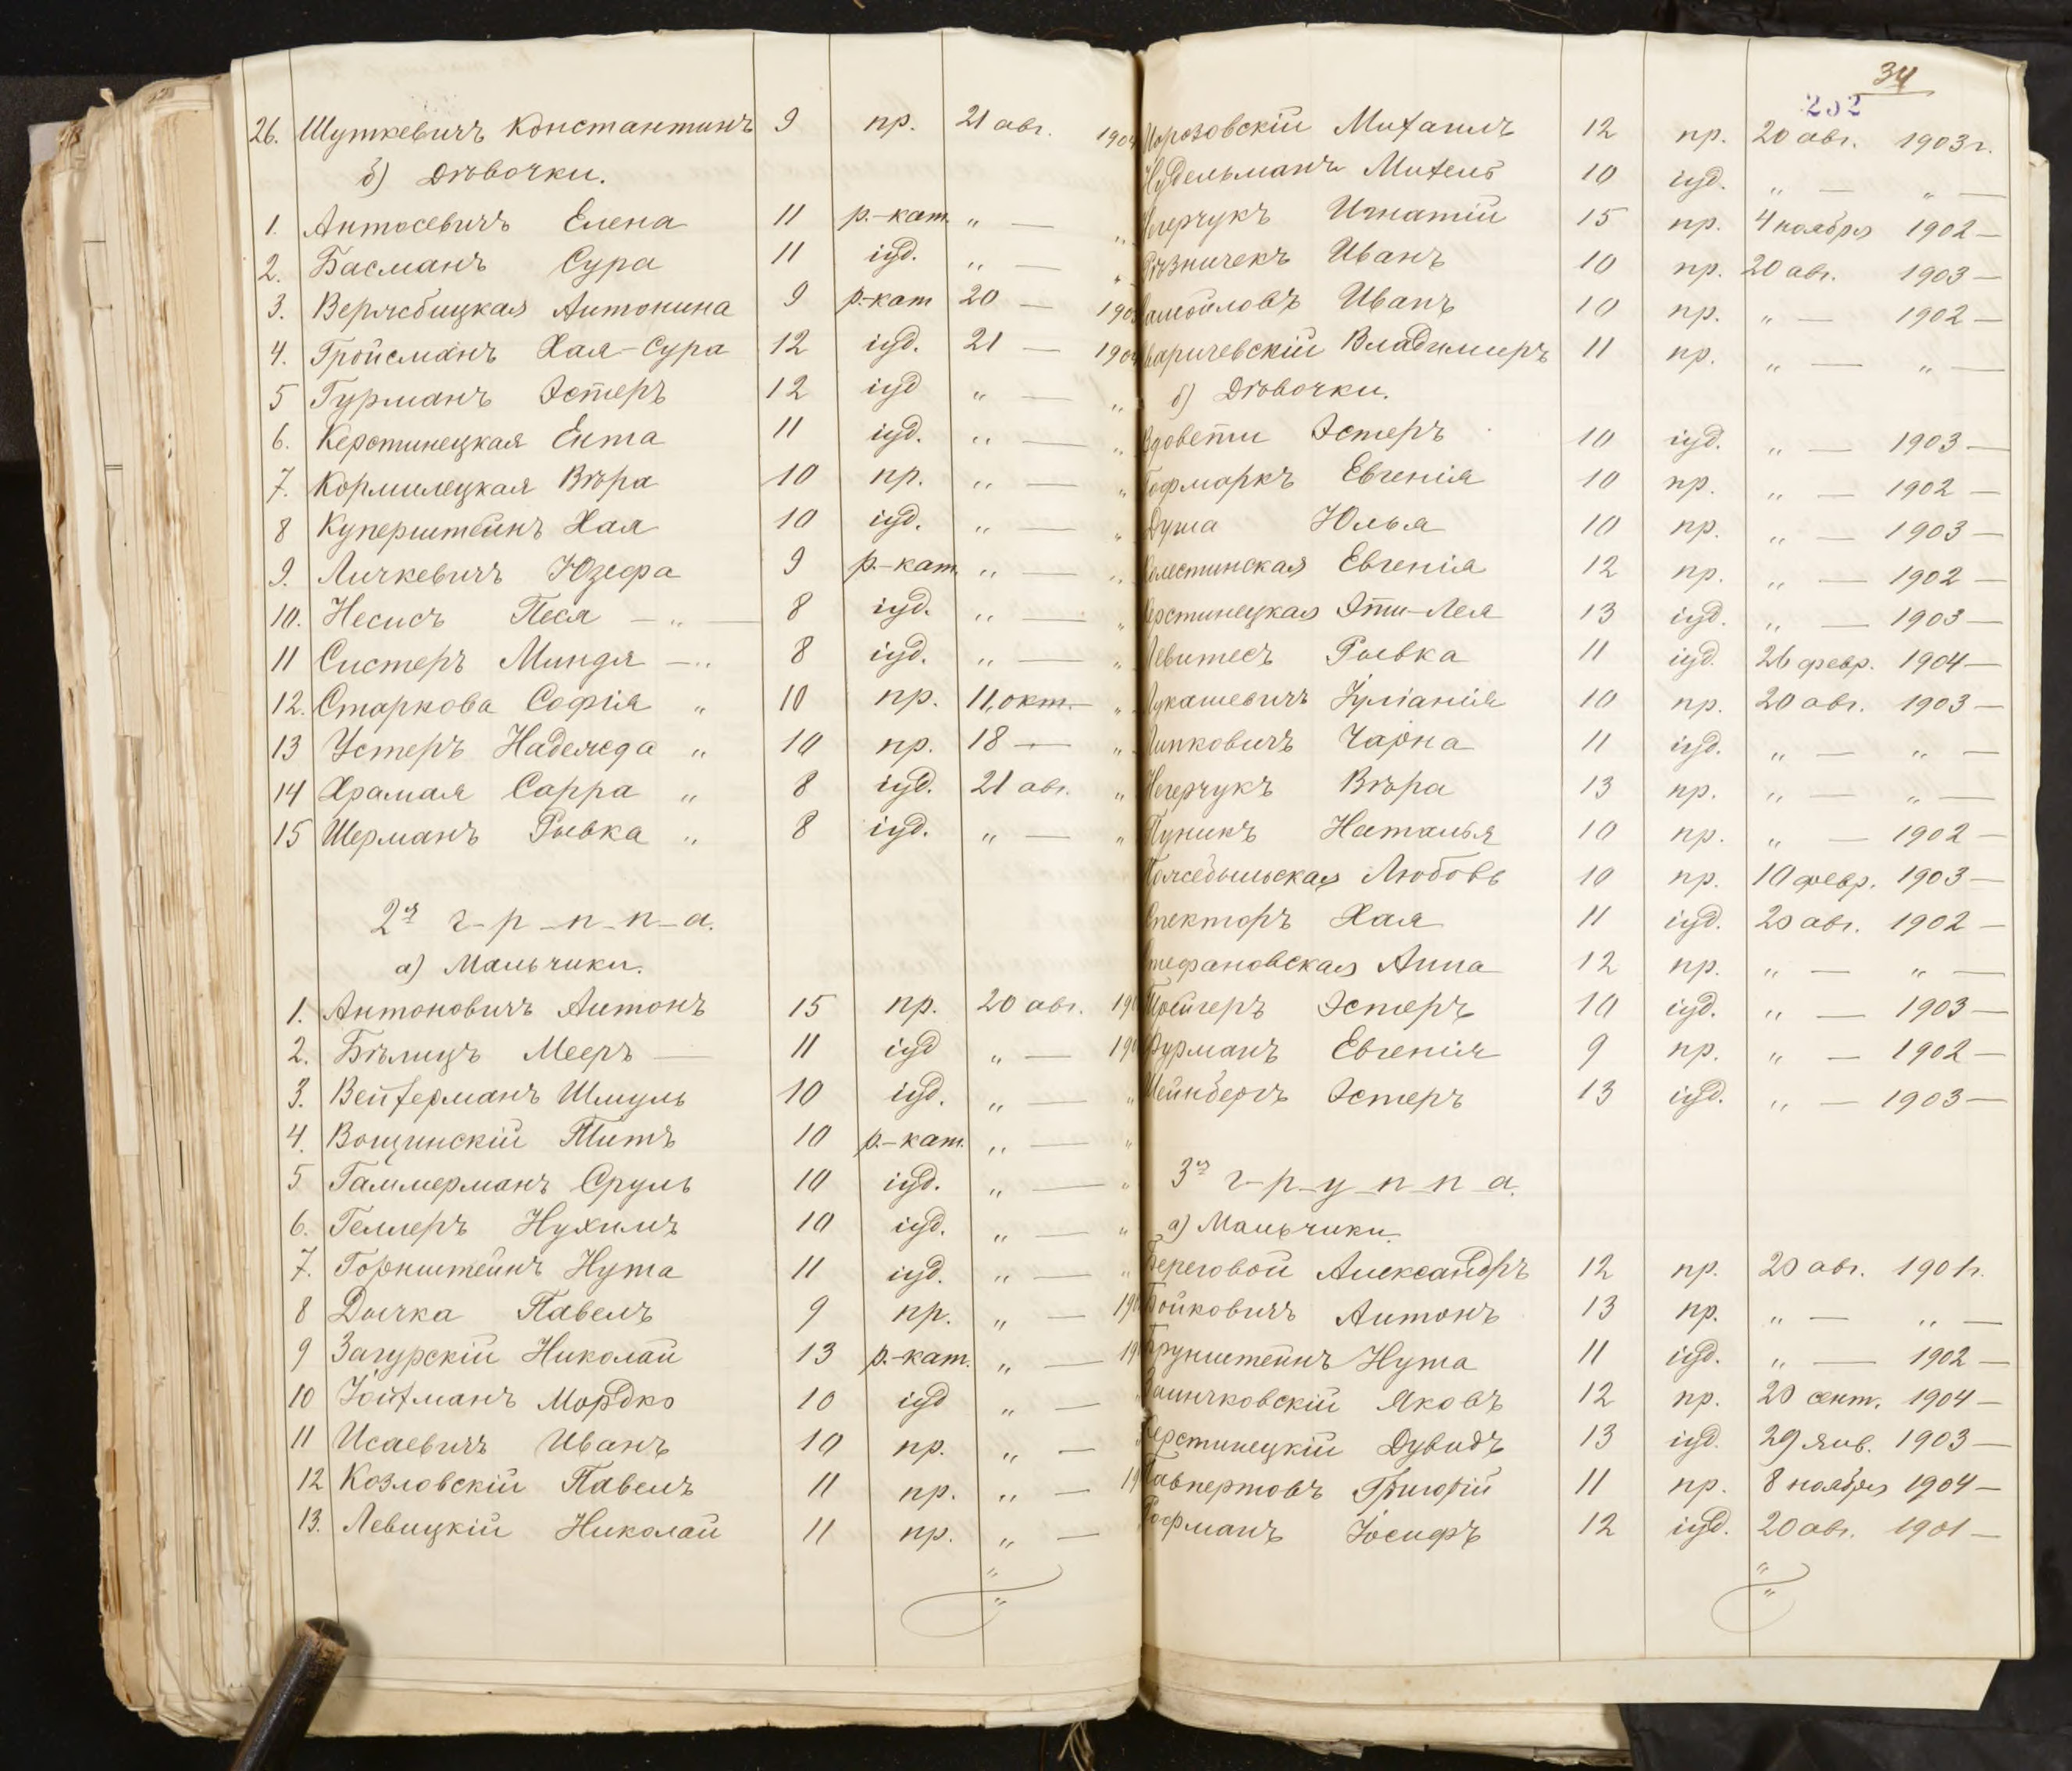 26. Шуткевичъ Константинъ 9 пр. 21 авг. 190
б) Дѣвочки.
1. Антосевичъ Елена 11 р.-кат. „ — „
2. Басманъ Сура 11 іуд. „ — „
3. Вержбицкая Антонина 9 р.-кат 20 — 190
4. Гройсманъ Хая-Сура 12 іуд. 21 — 190
5 Гурманъ Эстеръ 12 іуд „ — „
6. Керстинецкая Ента 11 іуд. „ — „
7. Кормилецкая Вѣра 10 пр. „ — „
8 Куперштейнъ Хая 10 іуд. „ — „
9. Личкевичъ Юзефа 9 р.-кат. „ — „
10. Несисъ Песя — „ — 8 іуд. „ — „
11 Систеръ Миндя — „ 8 іуд. „ — „
12. Старкова Софія „ 10 пр. 11 окт. — „
13 Устеръ Надежда „ 10 пр. 18 — „
14 Храмая Сарра „ 8 іуд. 21 авг. „
15 Шерманъ Рывка „ 8 іуд. „ — „
2я г-р-п-п-а.
а) Мальчики.
1. Антоновичъ Антонъ 15 пр. 20 авг. 190
2. Бѣлицъ Мееръ — 11 іуд „ — 190
3. Вейхерманъ Шмуль 10 іуд. „ — „
4. Вощинскій Титъ 10 р.-кат. „ — „
5 Гаммерманъ Сруль 10 іуд. „ — „
6. Геллеръ Нухимъ 10 іуд. „ — „
7. Горнштейнъ Нута 11 іуд. „ — „
8 Дычка Павелъ 9 пр. „ — 190
9 Загурскій Николай 13 р.-кат. „ — 19
10 Іойхманъ Мордко 10 іуд „ — „
11 Исаевичъ Иванъ 10 пр. „ —
12 Козловскій Павелъ 11 пр. „ — 19
13. Левицкій Николай 11 пр. „ —
„
„
34
252
Морозовскій Михаилъ 12 пр. 20 авг. 1903 г.
Нудельманъ Михель 10 іуд. „ — „ —
Негерчукъ Игнатій 15 пр. 4 ноября 1902 —
Рѣзничекъ Иванъ 10 пр. 20 авг. 1903 —
Самойловъ Иванъ 10 пр. „ — 1902 —
Сваричевскій Владимиръ 11 пр. „ — „ —
б) Дѣвочки.
Вдовети Эстеръ 10 іуд. „ — 1903 —
Гофмаркъ Евгенія 10 пр. „ — 1902 —
Душа Юлья 10 пр. „ — 1903 —
Келестинская Евгенія 12 пр. „ — 1902 —
Керстинецкая Эти-Лея 13 іуд. „ — 1903 —
Левитесъ Рывка 11 іуд. 26 февр. 1904 —
Лукашевичъ Іуліанія 10 пр. 20 авг. 1903 —
Липковичъ Чарна 11 іуд. „ — „ —
Негерчукъ Вѣра 13 пр. „ — „ —
Пуникъ Наталья 10 пр. „ — 1902 —
Любовь 10 пр. 10 февр. 1903 —
Спекторъ Хая 11 іуд. 20 авг. 1902 —
Стефановская Анна 12 пр. „ — „ —
Тройгеръ Эстеръ 10 іуд. „ — 1903 —
Фурманъ Евгенія 9 пр. „ — 1902 —
Шейнбергъ Эстеръ 13 іуд. „ — 1903 —
3я г-р-у-п-п-а.
а) Мальчики.
Береговой Александръ 12 пр. 20 авг. 1901 г.
Бойковичъ Антонъ 13 пр. „ — „ —
Грунштейнъ Нута 11 іуд. „ — 1902 —
Заинчковскій Яковъ 12 пр. 20 сент. 1904 —
Керстинецкій Дувидъ 13 іуд. 29 янв. 1903 —
Григорій 11 пр. 8 ноября 1904 —
Рофманъ Іосифъ 12 іуд. 20 авг. 1901 —
„
„